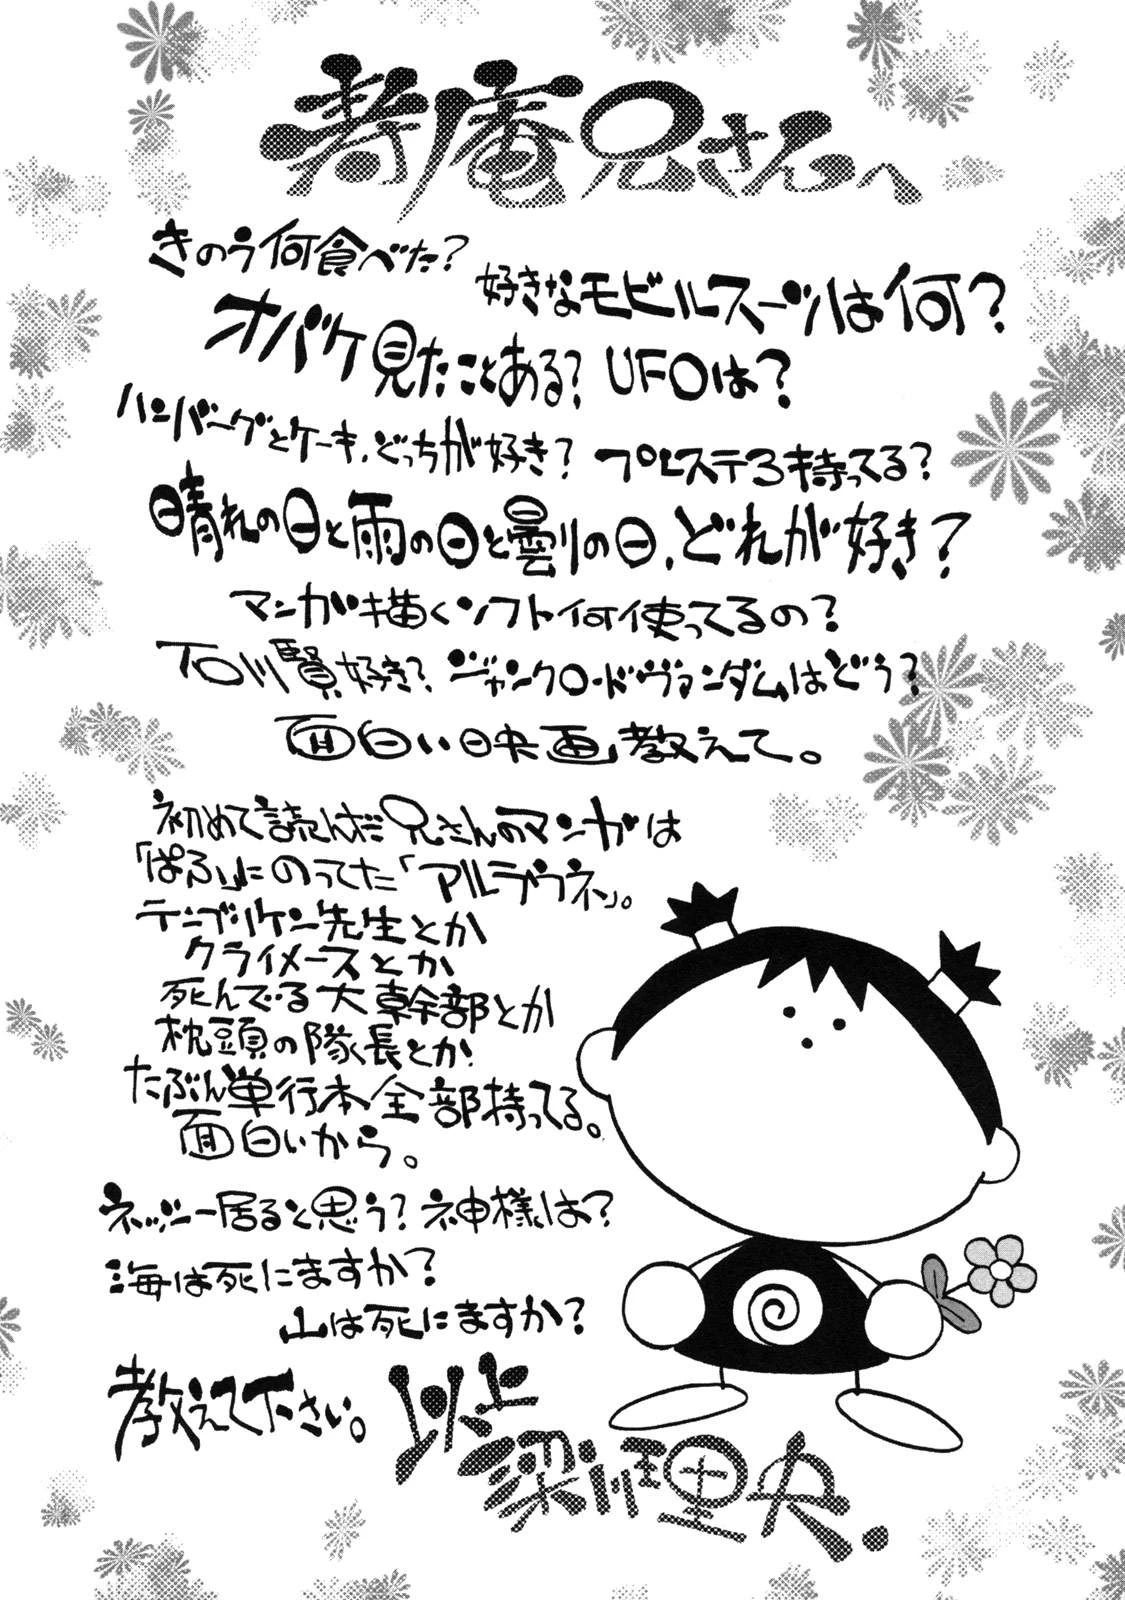 寿庵兄さんへ
きのう何食べた?
好きなモビルスーツは何?
オバケ見たことある? UFOは?
ハンバーグとケーキ、どっちが好き? プレステ3持ってる?
晴れの日と雨の日と曇りの日、どれが好き?
マンガ描くソフト何使ってるの?
下O川賢好き? ジャンクロードヴァンダムはどう?
面白い映画教えて。
初めて読んだ兄さんのマンガは
「ぱふ」にのってた「アルラウネ」。
テンプリケン先生とか
クライメースとか
死んでる大幹部とか
枕頭の隊長とか
たぶん単行本全部持ってる。
面白いから。
ネッシー居ると思う? 神様は?
海は死にますか?
山は死にますか?
教えて下さい。
以上
梁川理央.